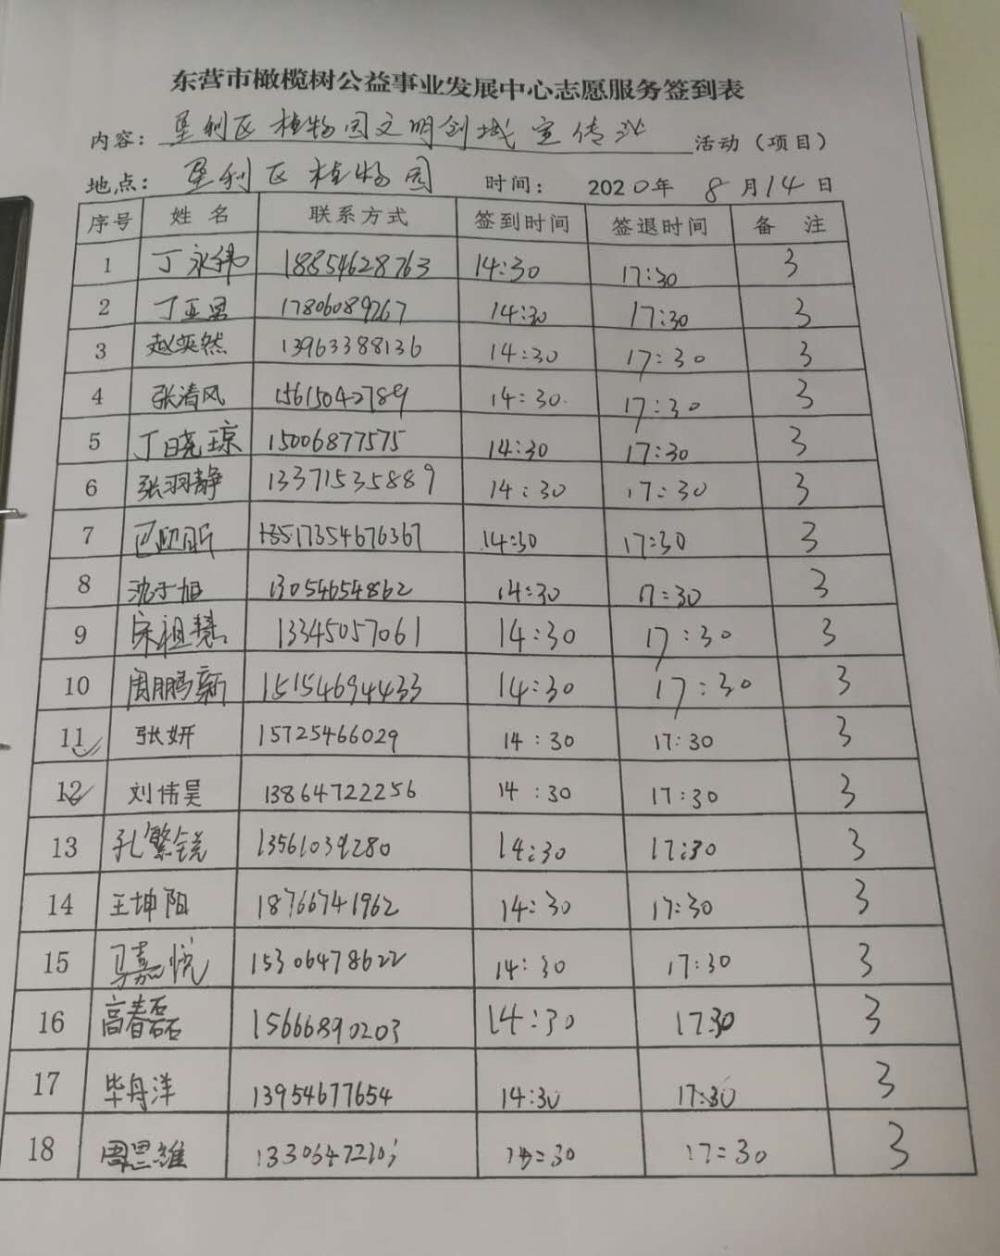 东营市橄榄树公益事业发展中心志愿服务签到表
内容：垦利区植物园文明创城宣传 活动（项目）
地点：垦利区植物园 时间：2020年8月14日
序号 姓名 联系方式 签到时间 签退时间 备注
1 丁永伟 18854628763 14:30 17:30 3
2 丁亚男 17806089267 14:30 17:30 3
3 赵奕然 13963388136 14:30 17:30 3
4 张清风 15615042789 14:30 17:30 3
5 丁晓琼 15006877575 14:30 17:30 3
6 张羽静 13371535889 14:30 17:30 3
7 17354676367 14:30 17:30 3
8 沈子旭 13054654862 14:30 17:30 3
9 宋祖慧 13345057061 14:30 17:30 3
10 周鹏新 15154694433 14:30 17:30 3
11 张妍 15725466029 14:30 17:30 3
12 刘伟昊 13864722256 14:30 17:30 3
13 孔繁锐 13561039280 14:30 17:30 3
14 王坤阳 18766741962 14:30 17:30 3
15 马嘉悦 15306478622 14:30 17:30 3
16 高春磊 15666890203 14:30 17:30 3
17 毕舟洋 13954677654 14:30 17:30 3
18 周思维 14:30 17:30 3